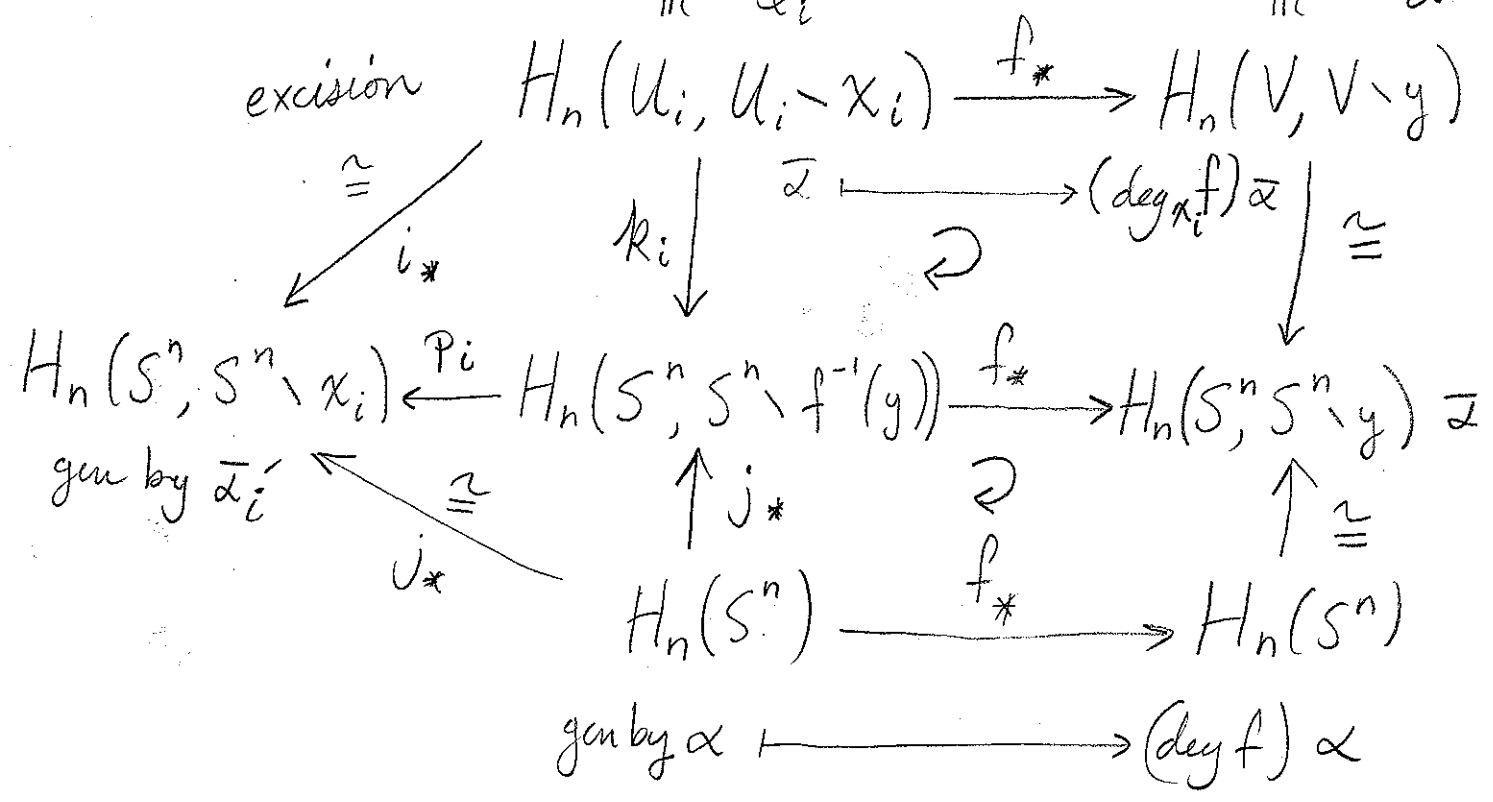 excisión H_n(U_i, U_i∖x_i) f_* → H_n(V, V∖y)
≅ i_* k_i ᾱ ↦ (deg_{x_i} f) ᾱ ≅
H_n(S^n, S^n∖x_i) p_i ← H_n(S^n, S^n∖f^{-1}(y)) f_* → H_n(S^n, S^n∖y) ᾱ
gen by ᾱ_i' ≅ j_* j_* ≅
H_n(S^n) f_* → H_n(S^n)
gen by α ↦ (deg f) α